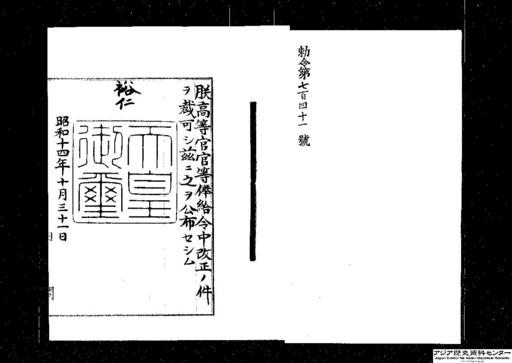 勅令第七百四十一號
朕高等官官等俸給令中改正ノ件
ヲ裁可シ茲ニ之ヲ公布セシム
裕仁
天皇
御璽
昭和十四年十月三十一日
アジア歴史資料センター
Japan Center for Asian Historical Records